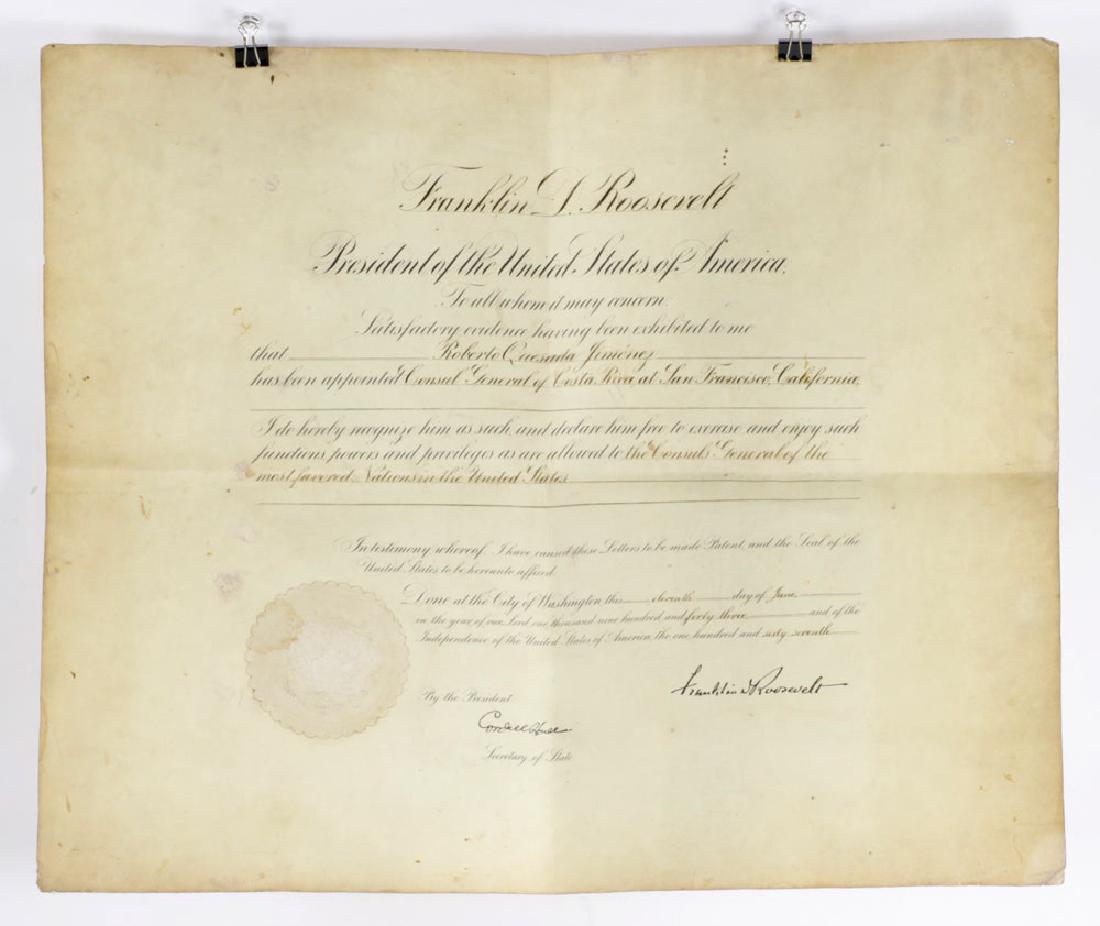 Franklin D. Roosevelt
President of the United States of America.
To all whom it may concern:
Satisfactory evidence having been exhibited to me
that Roberto Quesada Jiménez
has been appointed Consul General of Costa Rica at San Francisco, California,
I do hereby recognize him as such, and declare him free to exercise and enjoy such
functions, powers and privileges as are allowed to the Consuls General of the
most favored Nations in the United States.
In testimony whereof, I have caused these Letters to be made Patent, and the Seal of the
United States to be hereunto affixed.
Done at the City of Washington this eleventh day of June
in the year of our Lord one thousand nine hundred and forty three and of the
Independence of the United States of America, the one hundred and sixty seventh
Franklin D Roosevelt
By the President
Cordell Hull
Secretary of State